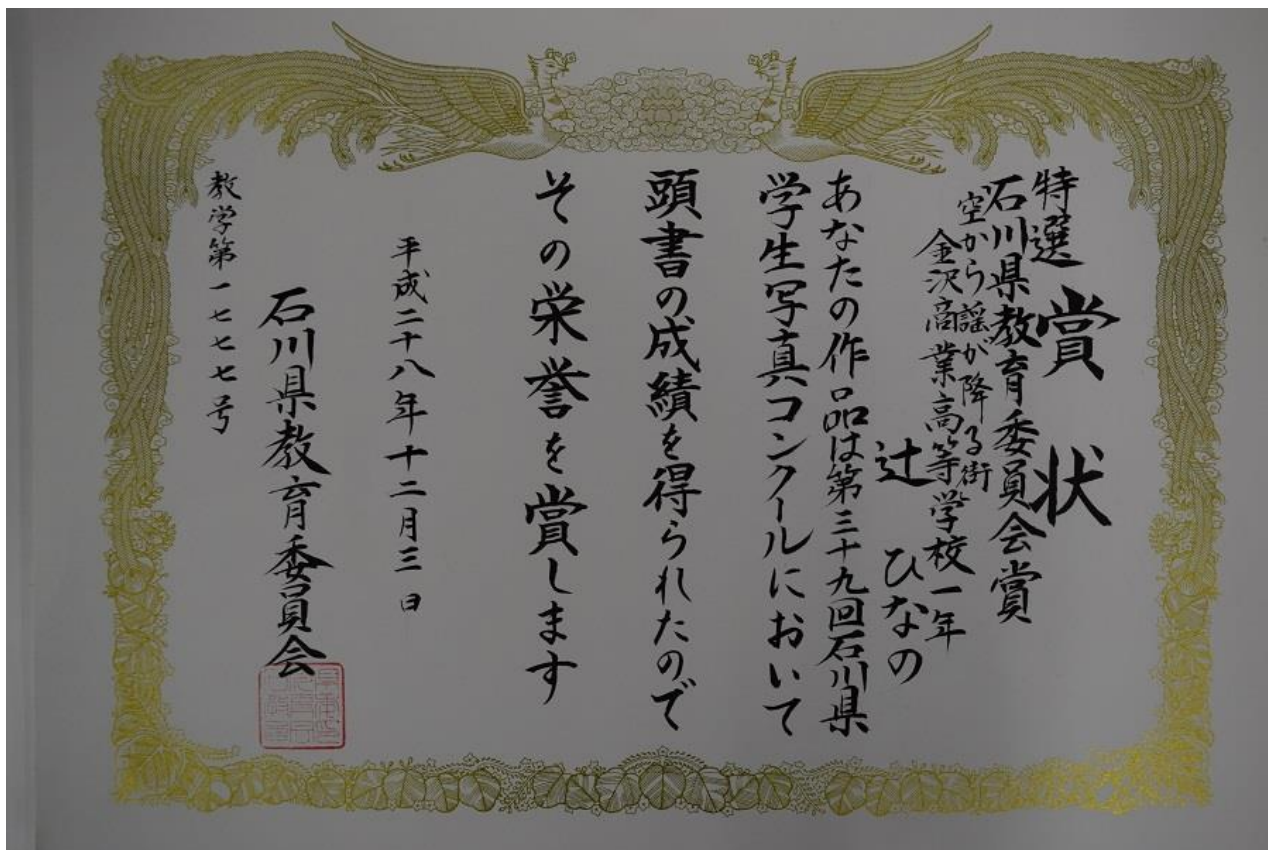 賞状
特選
石川県教育委員会賞
空から謡が降る街
金沢商業高等学校一年
辻 ひなの
あなたの作品は第三十九回石川県
学生写真コンクールにおいて
頭書の成績を得られたので
その栄誉を賞します
平成二十八年十二月三日
石川県教育委員会
教学第一七七七号